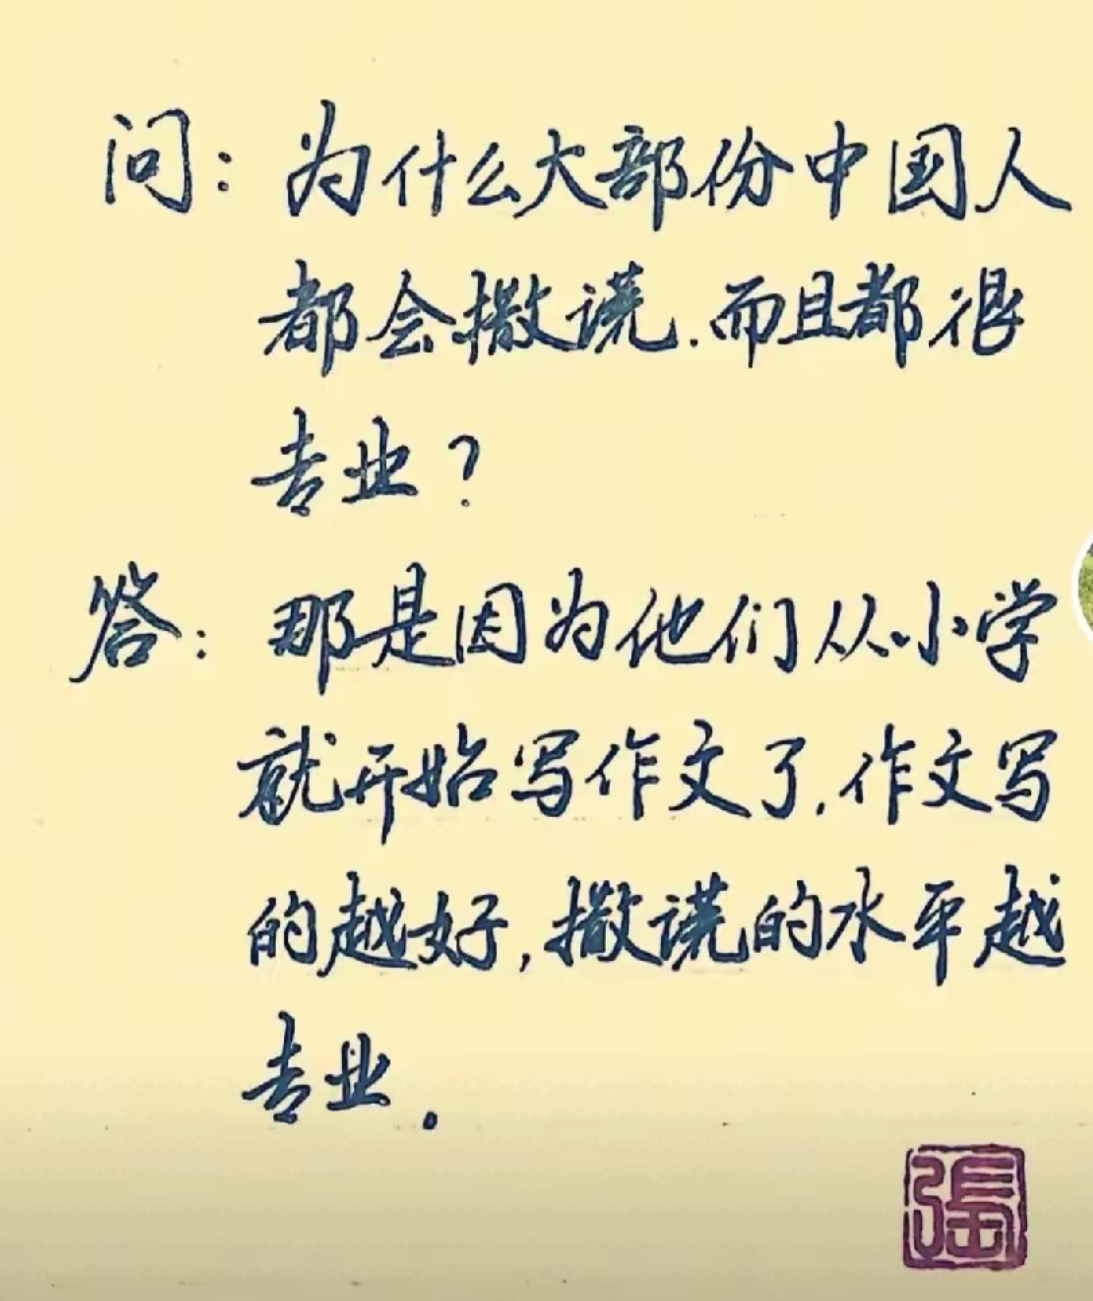 问：为什么大部份中国人
都会撒谎.而且都很
专业？
答：那是因为他们从小学
就开始写作文了,作文写
的越好,撒谎的水平越
专业。
張